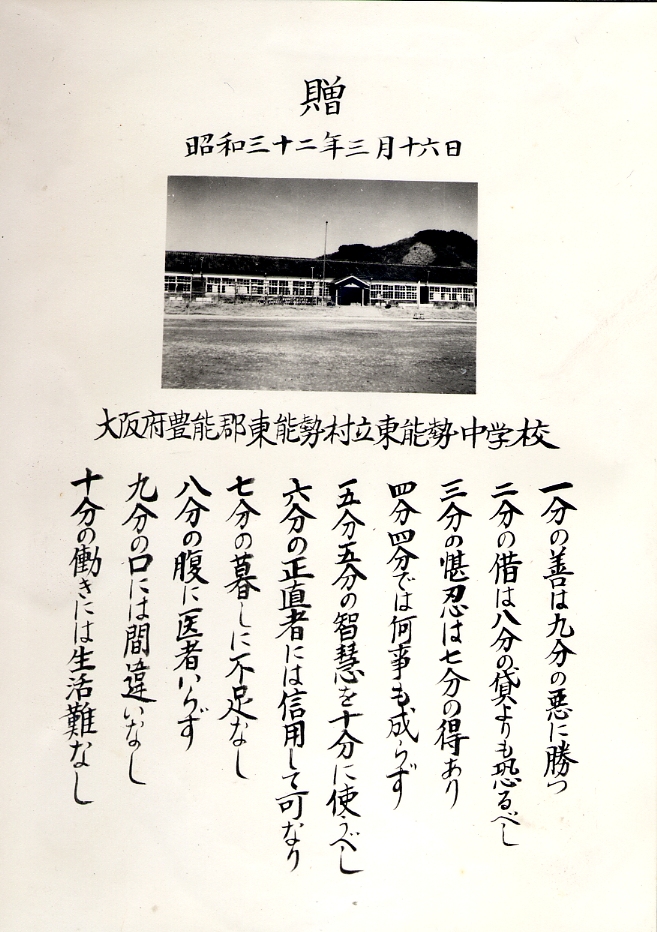 贈
昭和三十二年三月十六日
大阪府豊能郡東能勢村立東能勢中学校
一分の善は九分の悪に勝つ
二分の借は八分の貸よりも恐るべし
三分の堪忍は七分の得あり
四分四分では何事も成らず
五分五分の智慧を十分に使うべし
六分の正直者には信用して可なり
七分の暮しに不足なし
八分の腹に医者いらず
九分の口には間違いなし
十分の働きには生活難なし